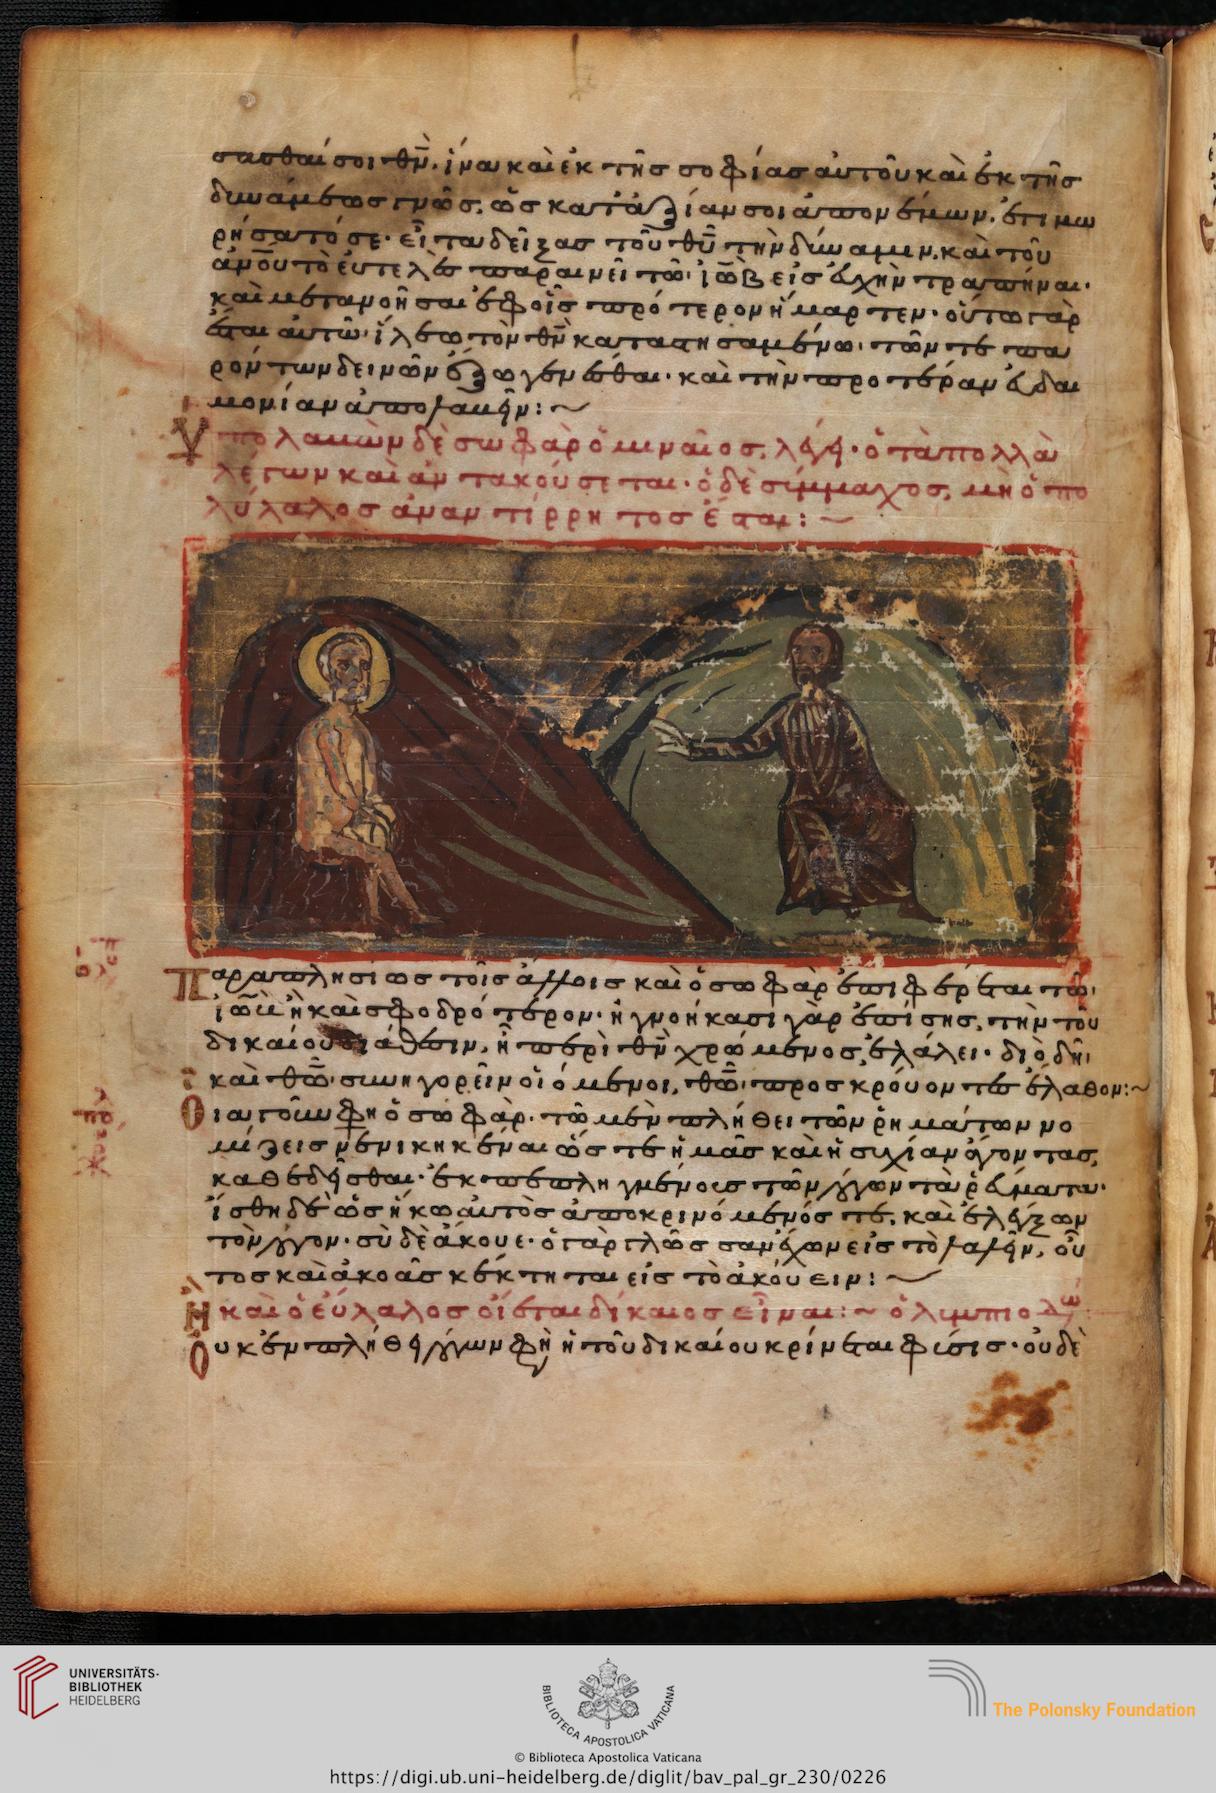 στασθαί σοι θν̅. ἵνα καὶ ἐκ τῆς σοφίας αὐτοῦ καὶ ἐκ τῆς
δυνάμεως γνῶς, ὡς κατ' ἀξίαν σοι ἀπονέμων. ἐτιμω
ρήσατό σε· εἶτα δείξας τοῦ θυ̅ τὴν δύναμιν. καὶ τοῦ
ἀνο̅υ τὸ εὐτελὲς παραινεῖ τῷ ἰὼβ εἰς εὐχὴν τραπῆναι.
καὶ μετανοῆσαι ἐφ οἷς πρότερον ἥμαρτεν· οὕτω γὰρ
ἔσται αὐτῷ· ἵλεω τὸν θν̅ καταστησαμένω· τῶν τε πα
ρόντων δεινῶν ἔξω γενέσθαι· καὶ τὴν προτέραν εὐδαι
μονίαν ἀπολαβεῖν: ~
Ὑπολαβὼν δὲ σωφὰρ ὁ μιναῖος, λέγει· ὁ τὰ πολλὰ
λέγων καὶ ἀντακούσεται· ὁ δὲ σύμμαχος, μὴ ὁ πο
λύλαλος ἀναντίρρητος ἔσται: ~
Παραπλησίως τοῖς ἄλλοις καὶ ὁ σωφὰρ ἐπιφέρεται τῷ
ἰὼβ ἢ καὶ σφοδρότερον· ἠγνοήκασι γὰρ ἐπίσης, τὴν τοῦ
δικαίου διάθεσιν, ᾗ περὶ θν̅ χρώμενος, ἐλάλει· διὸ δὴ
καὶ θω̅ συνηγορεῖν οἰόμενοι, θω̅ προσκρούοντες ἔλαθον: ~
διατοῦ φη ὁ σωφὰρ· τῷ μὲν πλήθει τῶν ρημάτων νο
μίζεις νενικηκέναι ὥς τε ἡμᾶς καὶ ἡσυχίαν ἄγοντας,
καθεδεῖσθαι·
ἴσθι δὲ ὡς ἥκω αὐτὸς ἀποκρινόμενός τε, καὶ ἐλέγξων
τὸν λόγον· σὺ δὲ ἄκουε· ὁ γὰρ γλῶσσαν ἔχων εἰς τὸ λαλεῖν, οὗ
τος καὶ ἀκοὰς κέκτηται εἰς τὸ ἀκούειν: ~
Ἢ καὶ ὁ εὔλαλος οἴεται δίκαιος εἶναι: ~ ὀλυμπιοδω
Οὐκ ἐν πλήθει λόγων φη ἡ τοῦ δικαίου κρίνεται φύσις· οὐδὲ
UNIVERSITÄTS-
BIBLIOTHEK
HEIDELBERG
BIBLIOTECA APOSTOLICA VATICANA
The Polonsky Foundation
© Biblioteca Apostolica Vaticana
https://digi.ub.uni-heidelberg.de/diglit/bav_pal_gr_230/0226